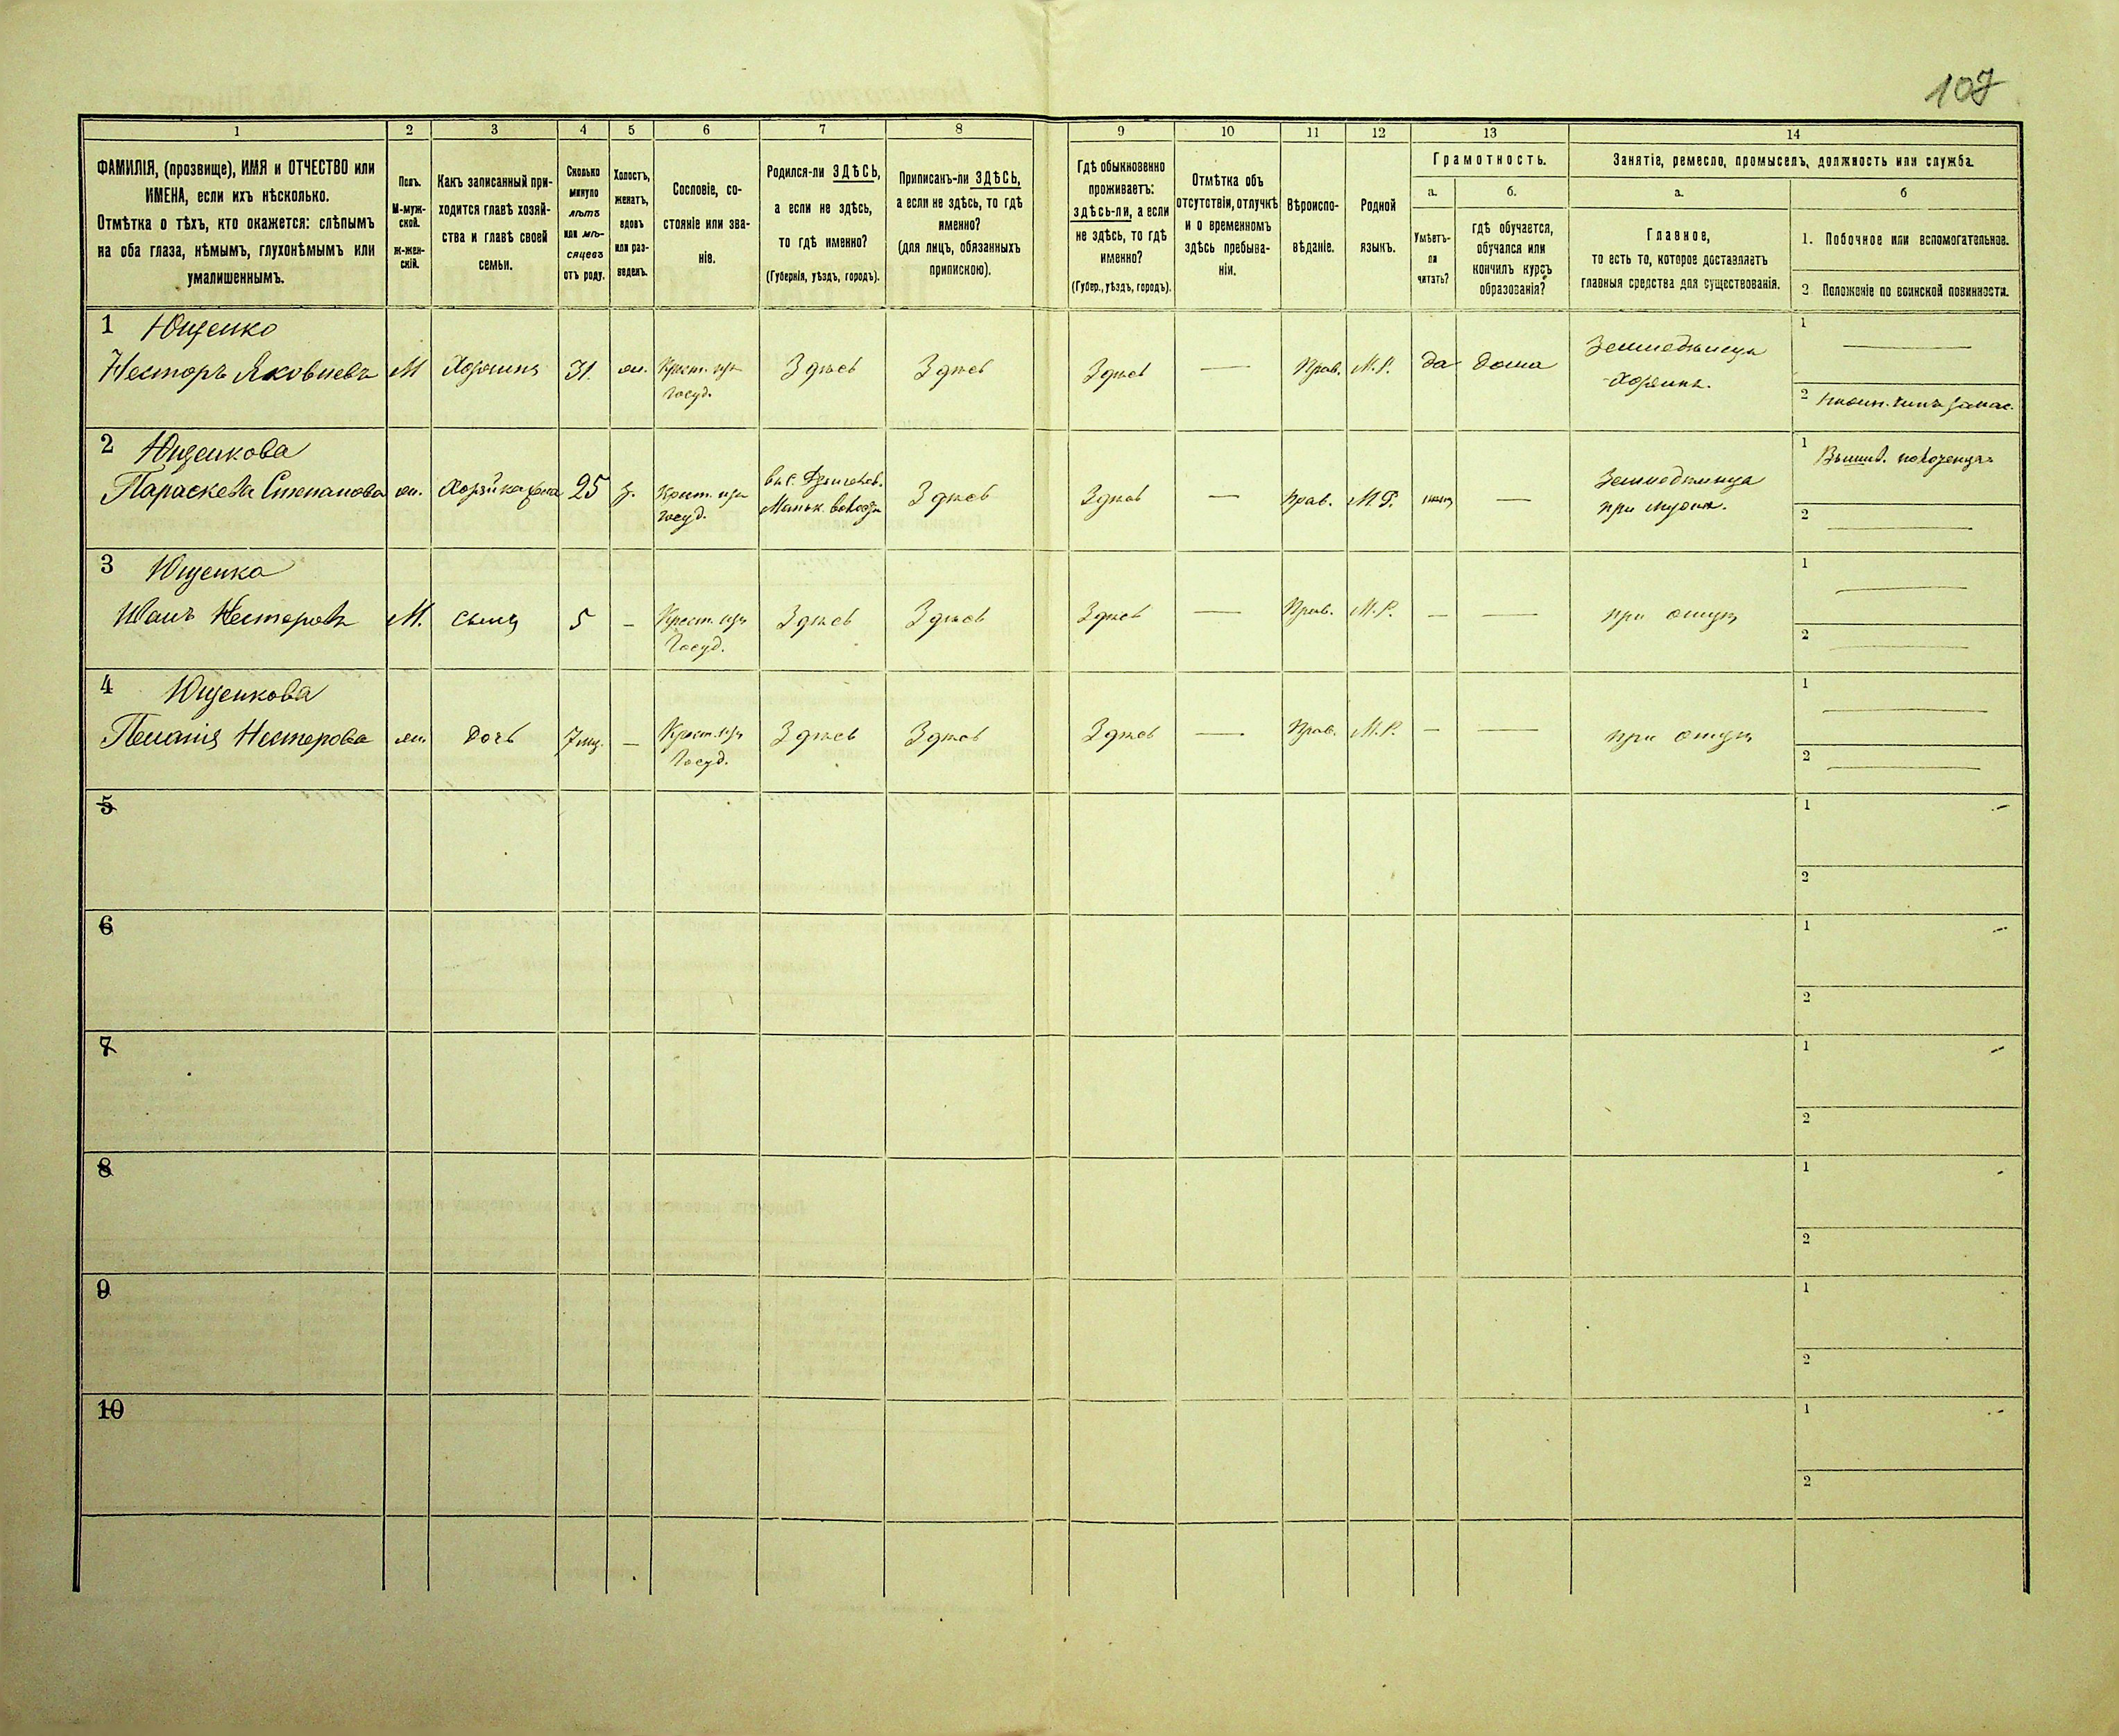 107
1 2 3 4 5 6 7 8 9 10 11 12 13 14
ФАМИЛІЯ, (прозвище), ИМЯ и ОТЧЕСТВО или
ИМЕНА, если ихъ нѣсколько.
Отмѣтка о тѣхъ, кто окажется: слѣпымъ
на оба глаза, нѣмымъ, глухонѣмымъ или
умалишеннымъ.
Полъ.
М-муж-
ской.
ж-жен-
скій.
Какъ записанный при-
ходится главѣ хозяй-
ства и главѣ своей
семьи.
Сколько
минуло
лѣтъ
или мѣ-
сяцевъ
отъ роду.
Холостъ,
женатъ,
вдовъ
или раз-
веденъ.
Сословіе, со-
стояніе или зва-
ніе.
Родился-ли ЗДѢСЬ,
а если не здѣсь,
то гдѣ именно?
(Губернія, уѣздъ, городъ).
Приписанъ-ли ЗДѢСЬ,
а если не здѣсь, то гдѣ
именно?
(для лицъ, обязанныхъ
припискою).
Гдѣ обыкновенно
проживаетъ:
здѣсь-ли, а если
не здѣсь, то гдѣ
именно?
(Губер., уѣздъ, городъ).
Отмѣтка объ
отсутствіи, отлучкѣ
и о временномъ
здѣсь пребыва-
ніи.
Вѣроиспо-
вѣданіе.
Родной
языкъ.
Грамотность.
а. б.
Умѣетъ-
ли
читать?
гдѣ обучается,
обучался или
кончилъ курсъ
образованія?
Занятіе, ремесло, промыселъ, должность или служба.
а. б
Главное,
то есть то, которое доставляетъ
главныя средства для существованія.
1. Побочное или вспомогательное.
2 Положеніе по воинской повинности.
1 Ющенко
Несторъ Яковлевъ М Хозяинъ 31. ж. Крест. изъ Здѣсь Здѣсь Здѣсь — Прав. М.Р. Да дома
Госуд.
Земледѣлецъ
Хозяинъ.
1 —
2
2 Ющенкова
Параскева Степанова ж. Хозяйка жена 25 з. Крест. изъ
Госуд.
Здѣсь Здѣсь — Прав. М.Р. нѣтъ —
Земледѣлица
при мужѣ.
1
2 —
3 Ющенко
Иванъ Нестеровъ М. сынъ 5 – Крест. изъ Здѣсь Здѣсь Здѣсь — Прав. М.Р. – — при отцѣ
Госуд.
1 —
2 —
4 Ющенкова
Пелагія Нестерова ж. дочь 7 мц. – Крест. изъ Здѣсь Здѣсь Здѣсь — Прав. М.Р. – — при отцѣ
Госуд.
1 —
2 —
5 1
2
6 1
2
7 1
2
8 1
2
9 1
2
10 1
2